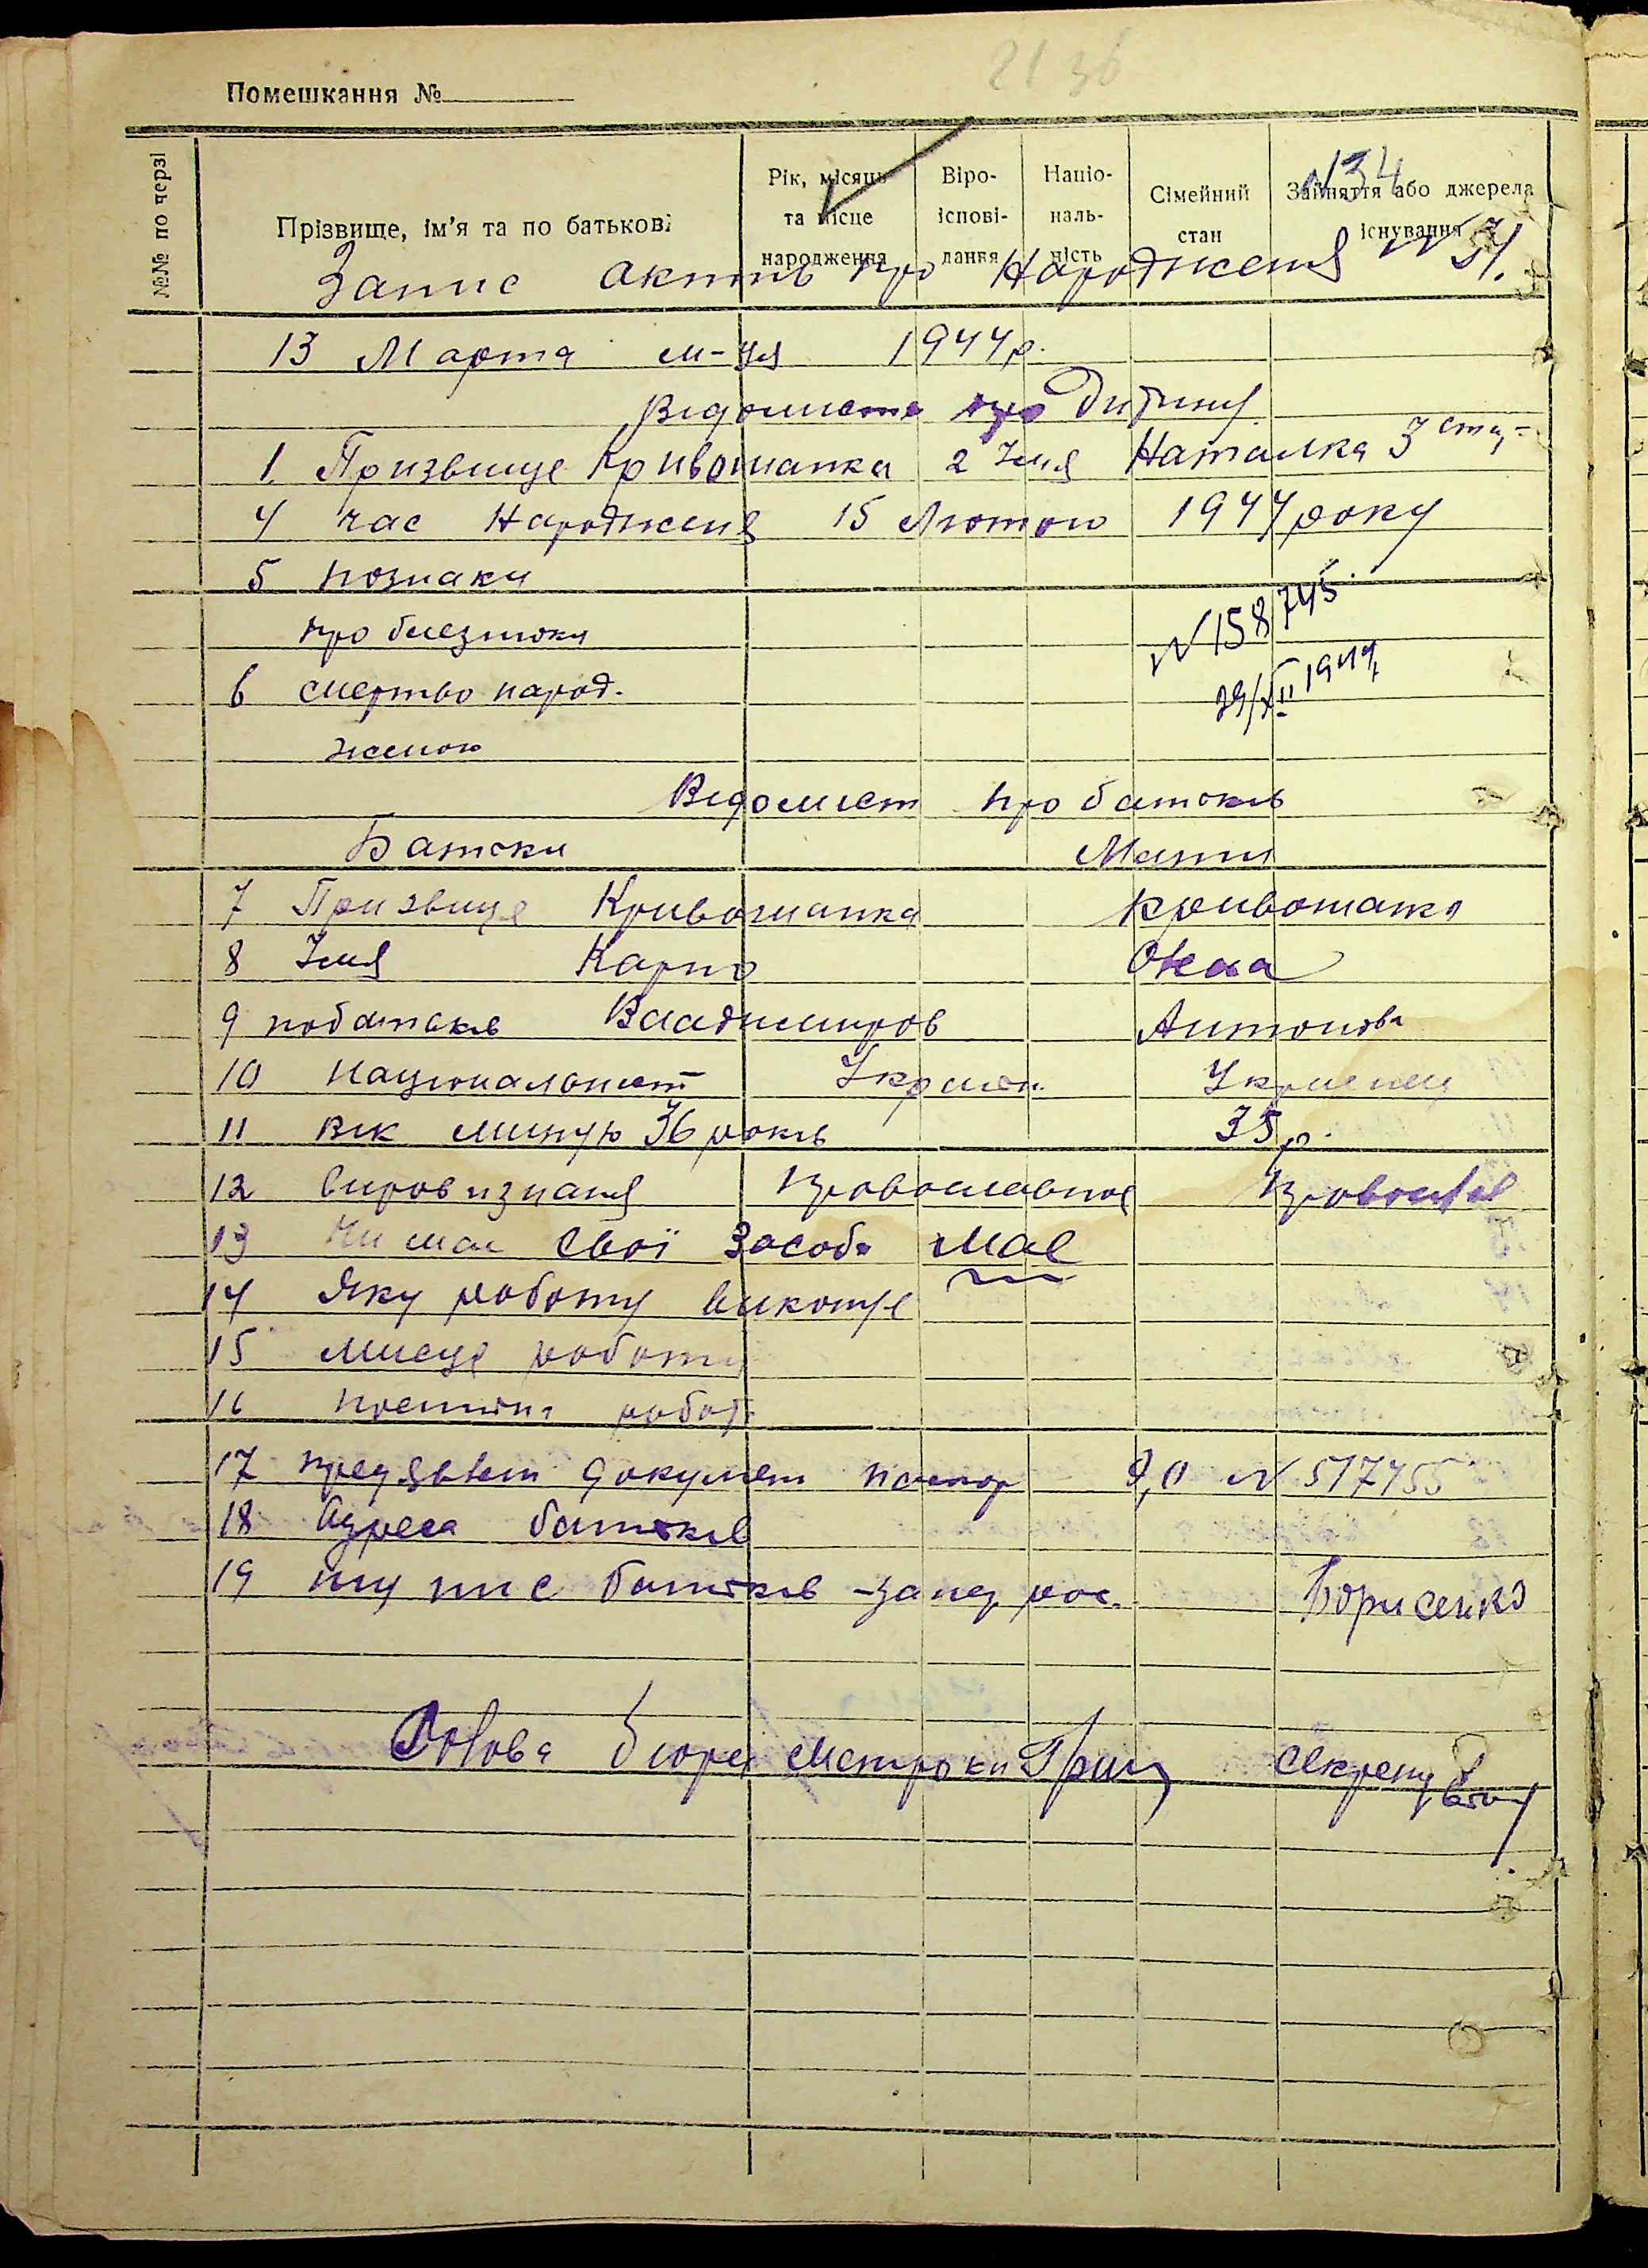 21 36
Помешкання №
№№ по черзі
Прізвище, ім'я та по батькові
Рік, місяць та місце народження
Віро-іспові-дання
Націо-наль-ність
Сімейний стан
Зайняття або джерела існування
N 34
Запис актів про Народженя N 51.
13 Марта м-ця 1944 р.
Відомисть про Дитину
1. Призвище Кривошапка 2 Імя Наталка 3 стц-
4 час Народженя 15 Лютою 1944 року
5 познаки
про близнюки
N 158745.
6 смертво народ.
29/XII 1944
женою
Відомист про батьків
Батьки Мати
7 Призвище Кривошапка Кривошапка
8 Імя Карпо Олена
9 побатькв Владимиров Антонова
10 Национальнист Україн. Украинец
11 Вік миную 36 років 35 р.
12 Вировизнаня православное
13 Чи має свої Засоби має
14 Яку работу виконує
15 Мисце работи
16 работ
17 документ паспор N 517455
18 Адреса батьків
19 пид пис батьків Борисенко
Голова Секрет